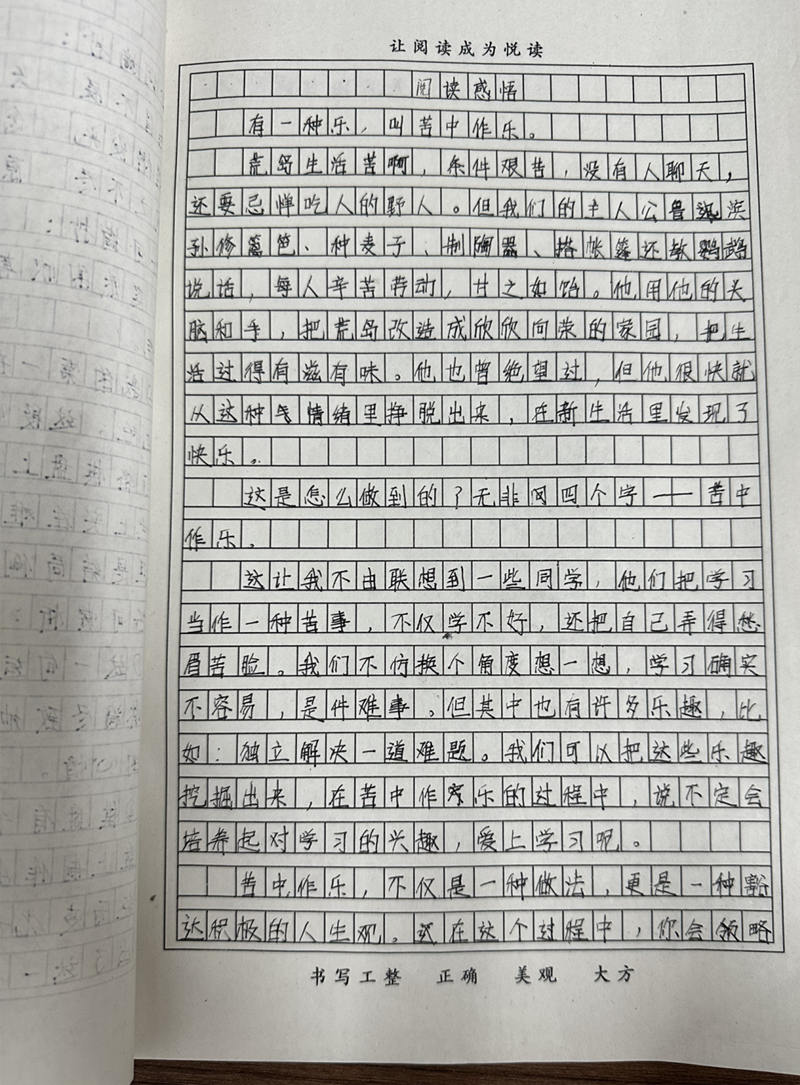 让阅读成为悦读
阅读感悟
有一种乐，叫苦中作乐。
荒岛生活苦啊，条件艰苦，没有人聊天，
还要忌惮吃人的野人。但我们的主人公鲁滨
孙修篱笆、种麦子、制陶器、搭帐篷还教鹦鹉
说话，每人辛苦劳动，甘之如饴。他用他的头
脑和手，把荒岛改造成欣欣向荣的家园，把生
活过得有滋有味。他也曾绝望过，但他很快就
从这种气情绪里挣脱出来，在新生活里发现了
快乐。
这是怎么做到的？无非四个字——苦中
作乐。
这让我不由联想到一些同学，他们把学习
当作一种苦事，不仅学不好，还把自己弄得愁
眉苦脸。我们不仿换个角度想一想，学习确实
不容易，是件难事。但其中也有许多乐趣，比
如：独立解决一道难题。我们可以把这些乐趣
挖掘出来，在苦中作乐的过程中，说不定会
培养起对学习的兴趣，爱上学习呢。
苦中作乐，不仅是一种做法，更是一种豁
达积极的人生观。在这个过程中，你会领略
书写工整 正确 美观 大方